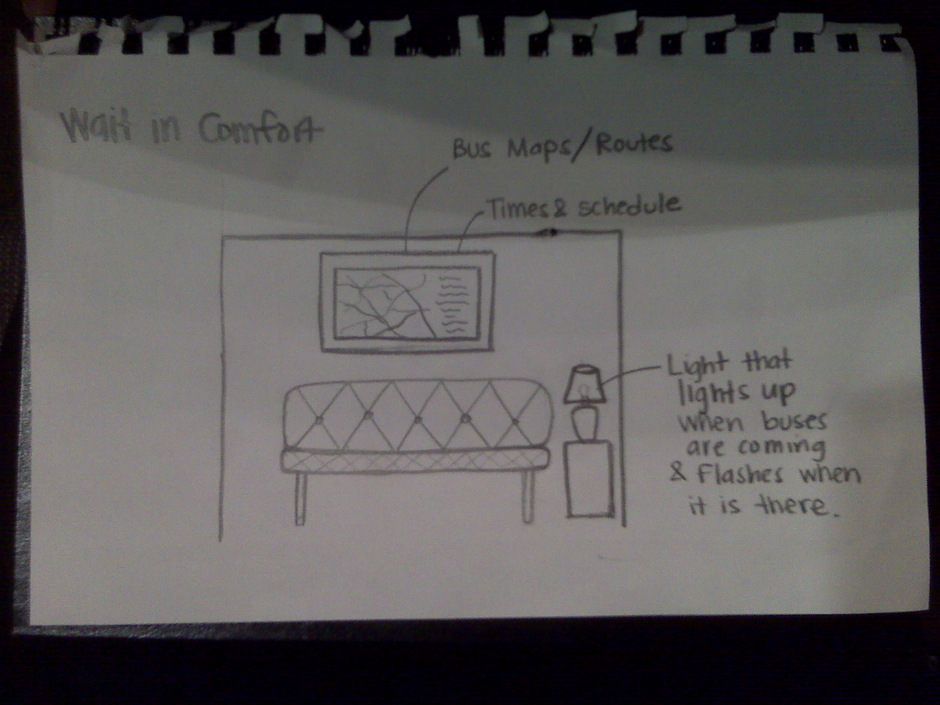 Wait in Comfort
Bus Maps/Routes
Times & schedule
Light that
lights up
when buses
are coming
& Flashes when
it is there.